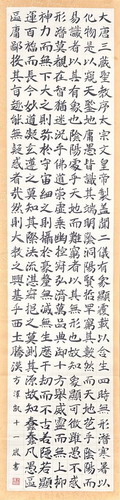 大唐三藏聖教序太宗文皇帝製蓋聞二儀有象顯覆載以含生四時無形潛寒暑以
化物是以窺天鑒地庸愚皆識其端明陰洞陽賢哲罕窮其數然而天地苞乎陰陽而
易識者以其有象也陰陽處乎天地而難窮者以其無形也故知象顯可徵雖愚不惑
形潛莫覩在智猶迷況乎佛道崇虛乘幽控寂弘濟萬品典御十方舉威靈而無上抑
神力而無下大之則彌於宇宙細之則攝於毫釐無滅無生歷千劫而不古若隱若顯
運百福而長今妙道凝玄遵之莫知其際法流湛寂挹之莫測其源故知蠢蠢凡愚區
區庸鄙投其旨趣能無疑惑者哉然則大教之興基乎西土騰漢 方澤凱十一歲書